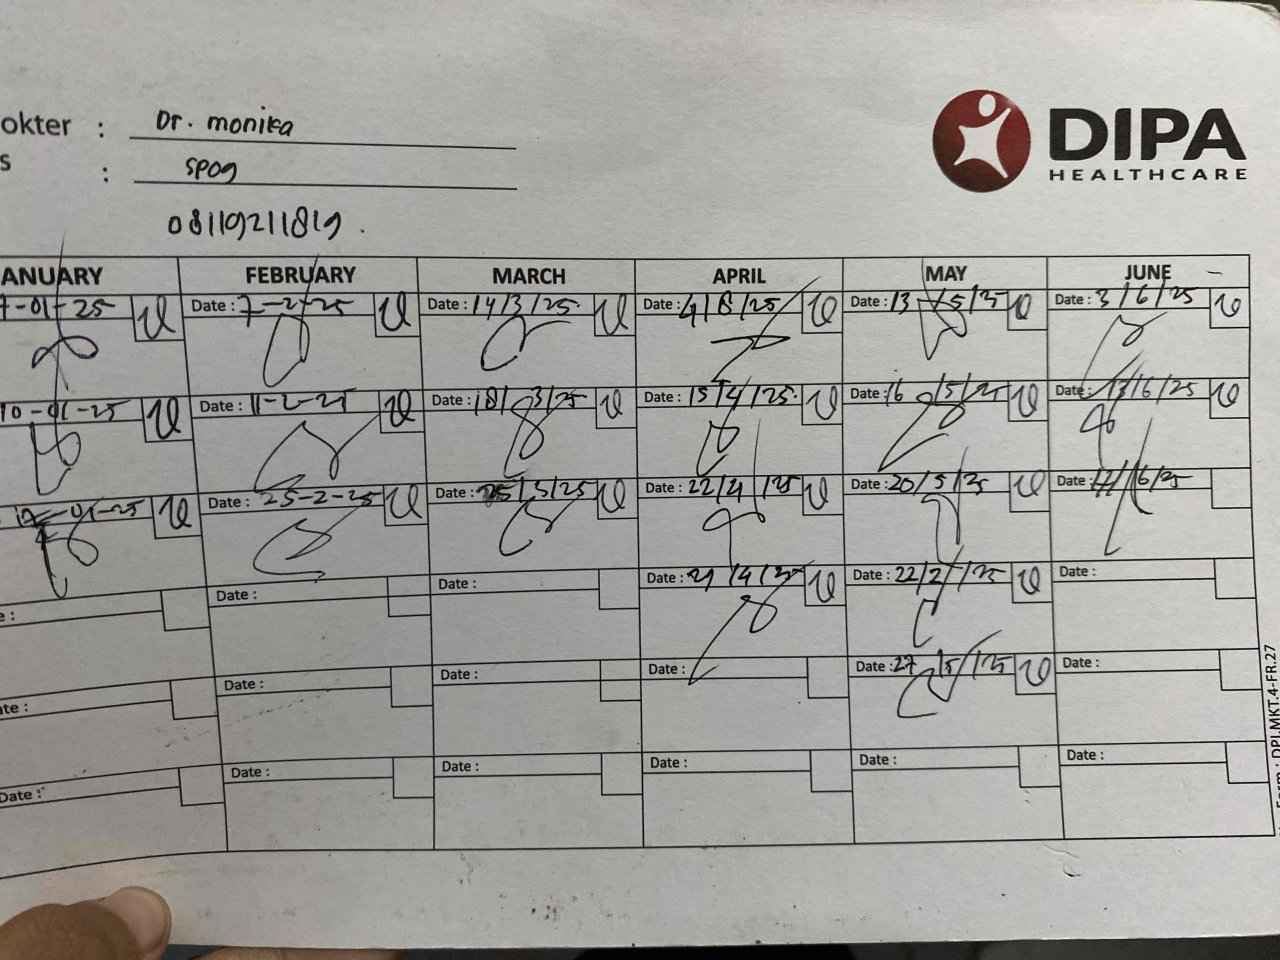 okter : Dr. monika
s : spog
08119211819.
DIPA
HEALTHCARE
ANUARY FEBRUARY MARCH APRIL MAY JUNE
7-01-25 Date : 7-2-25 Date : 14/3/25 Date : Date : 13/5/25 Date : 3/6/25
10-01-25 Date : 11-2-25 Date : 18/3/25 Date : 15/4/25 Date : 16/5/25 Date : 13/6/25
-01-25 Date : 25-2-25 Date : 25/3/25 Date : 22/4/25 Date : 20/5/25 Date :
e : Date : Date : Date : Date : 22/ Date :
ate : Date : Date : Date : Date : 27/5/25 Date :
Date : Date : Date : Date : Date : Date :
Form : DPI.MKT.4-FR.27